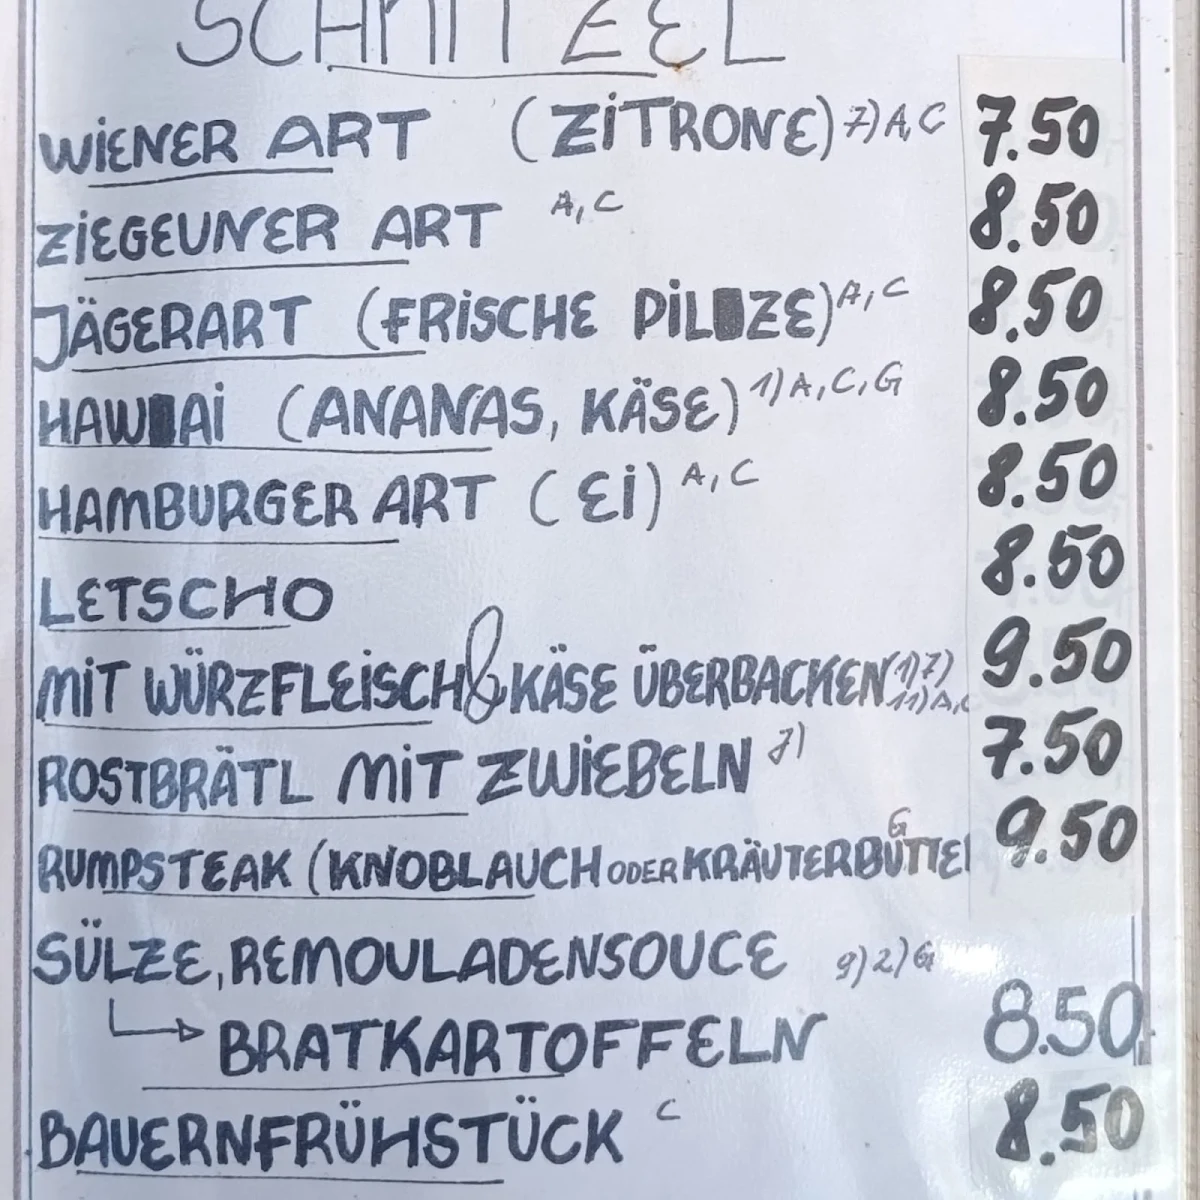 SCHNITZEL
WIENER ART (ZITRONE) 7) A, C 7.50
ZIEGEUNER ART A, C 8.50
JÄGERART (FRISCHE PILZE) A, C 8.50
HAWAI (ANANAS, KÄSE) 1) A, C, G 8.50
HAMBURGER ART (EI) A, C 8.50
LETSCHO 8.50
MIT WÜRZFLEISCH & KÄSE ÜBERBACKEN 1) 7) 11) A, C 9.50
ROSTBRÄTL MIT ZWIEBELN 7) 7.50
RUMPSTEAK (KNOBLAUCH ODER KRÄUTERBUTTE G 9.50
SÜLZE, REMOULADENSOUCE 9) 2) G
BRATKARTOFFELN 8.50
BAUERNFRÜHSTÜCK C 8.50